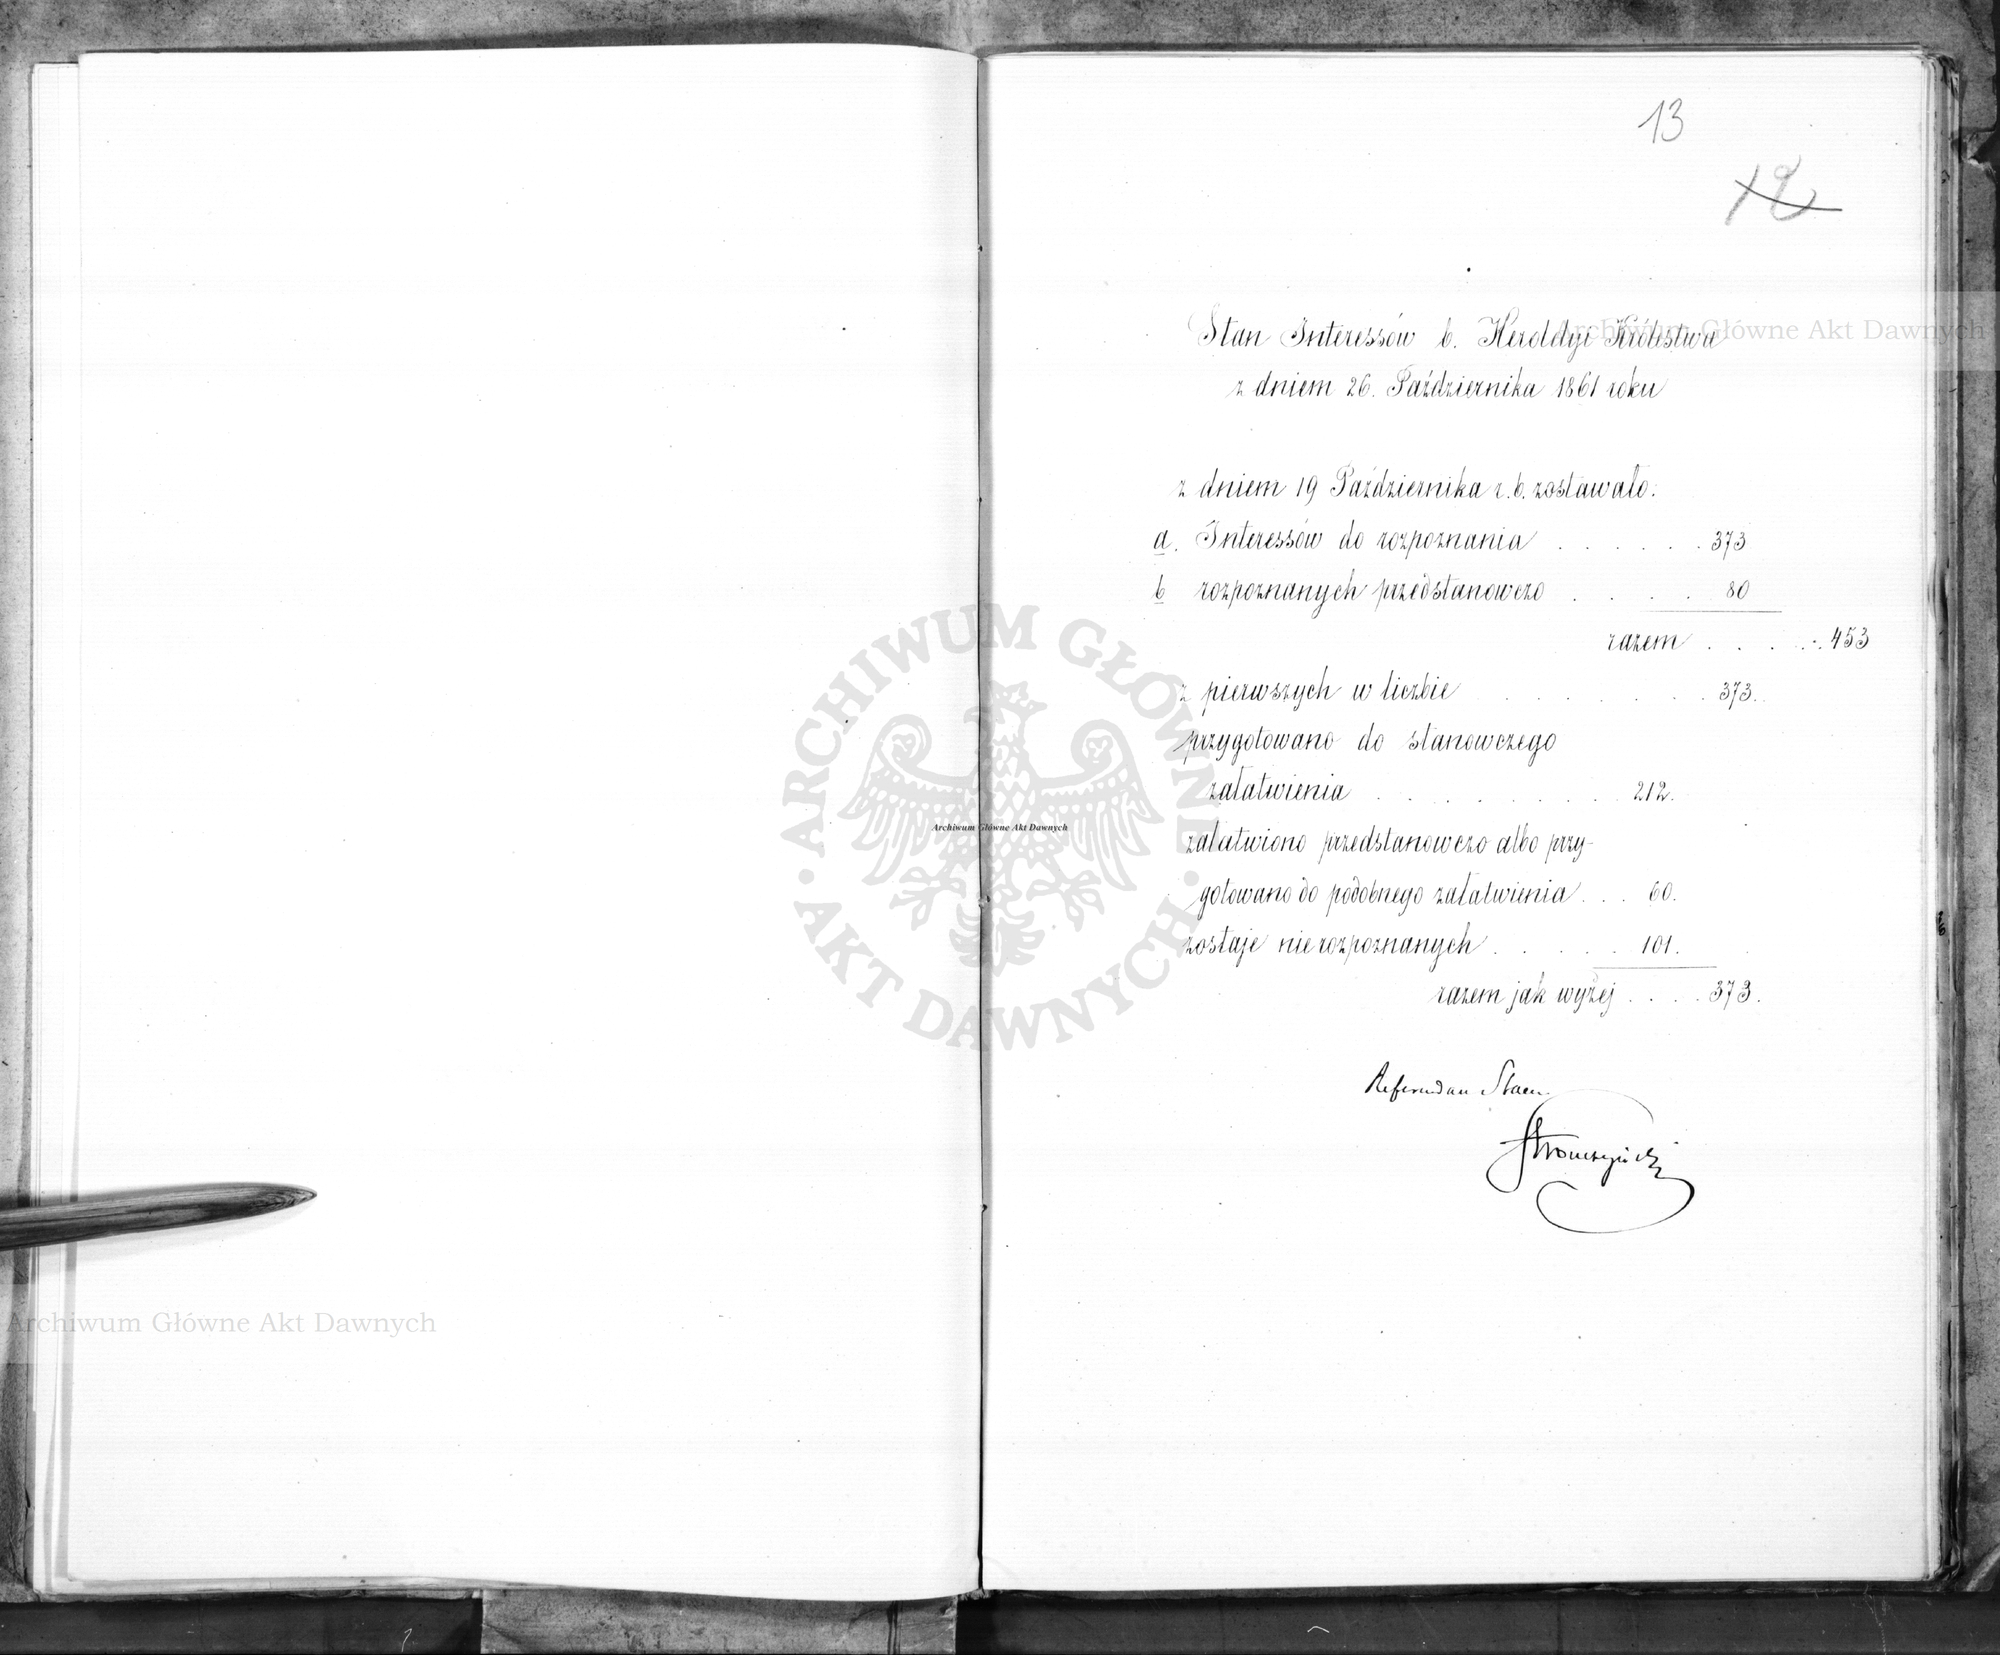 13
12
Stan Interessów b. Heroldyi Królestwa
z dniem 26. Października 1861 roku
z dniem 19 Października r. b. zostawało:
a. Interessów do rozpoznania . . . . . . 373
b rozpoznanych przedstanowczo . . . . 80
razem . . . . . . 453
z pierwszych w liczbie . . . . . . 373.
przygotowano do stanowczego
załatwienia . . . . . . . . 212.
załatwiono przedstanowczo albo przy-
gotowano do podobnego załatwienia . . . 60.
zostaje nierozpoznanych . . . . . 101.
razem jak wyżej . . . . 373.
Referendarz Stanu
Stronczyński
Archiwum Główne Akt Dawnych
ARCHIWUM GŁÓWNE • AKT DAWNYCH •
Archiwum Główne Akt Dawnych
Archiwum Główne Akt Dawnych